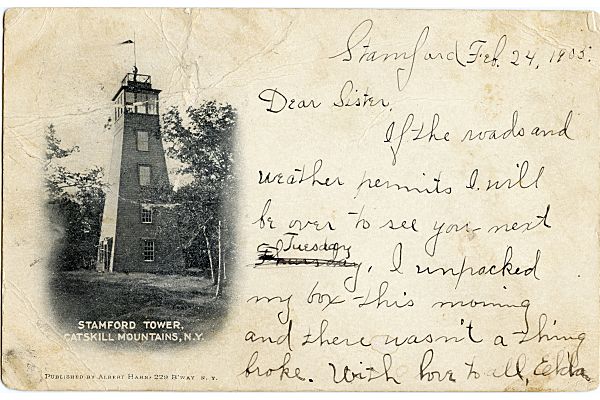 Stamford Feb. 24, 1905.
Dear Sister,
If the roads and
weather permits I will
be over to see you next
Tuesday
Thursday, I unpacked
my box this morning
and there wasn't a thing
broke. With love to all,
STAMFORD TOWER,
CATSKILL MOUNTAINS, N.Y.
PUBLISHED BY ALBERT HAHN, 229 B'WAY N. Y.